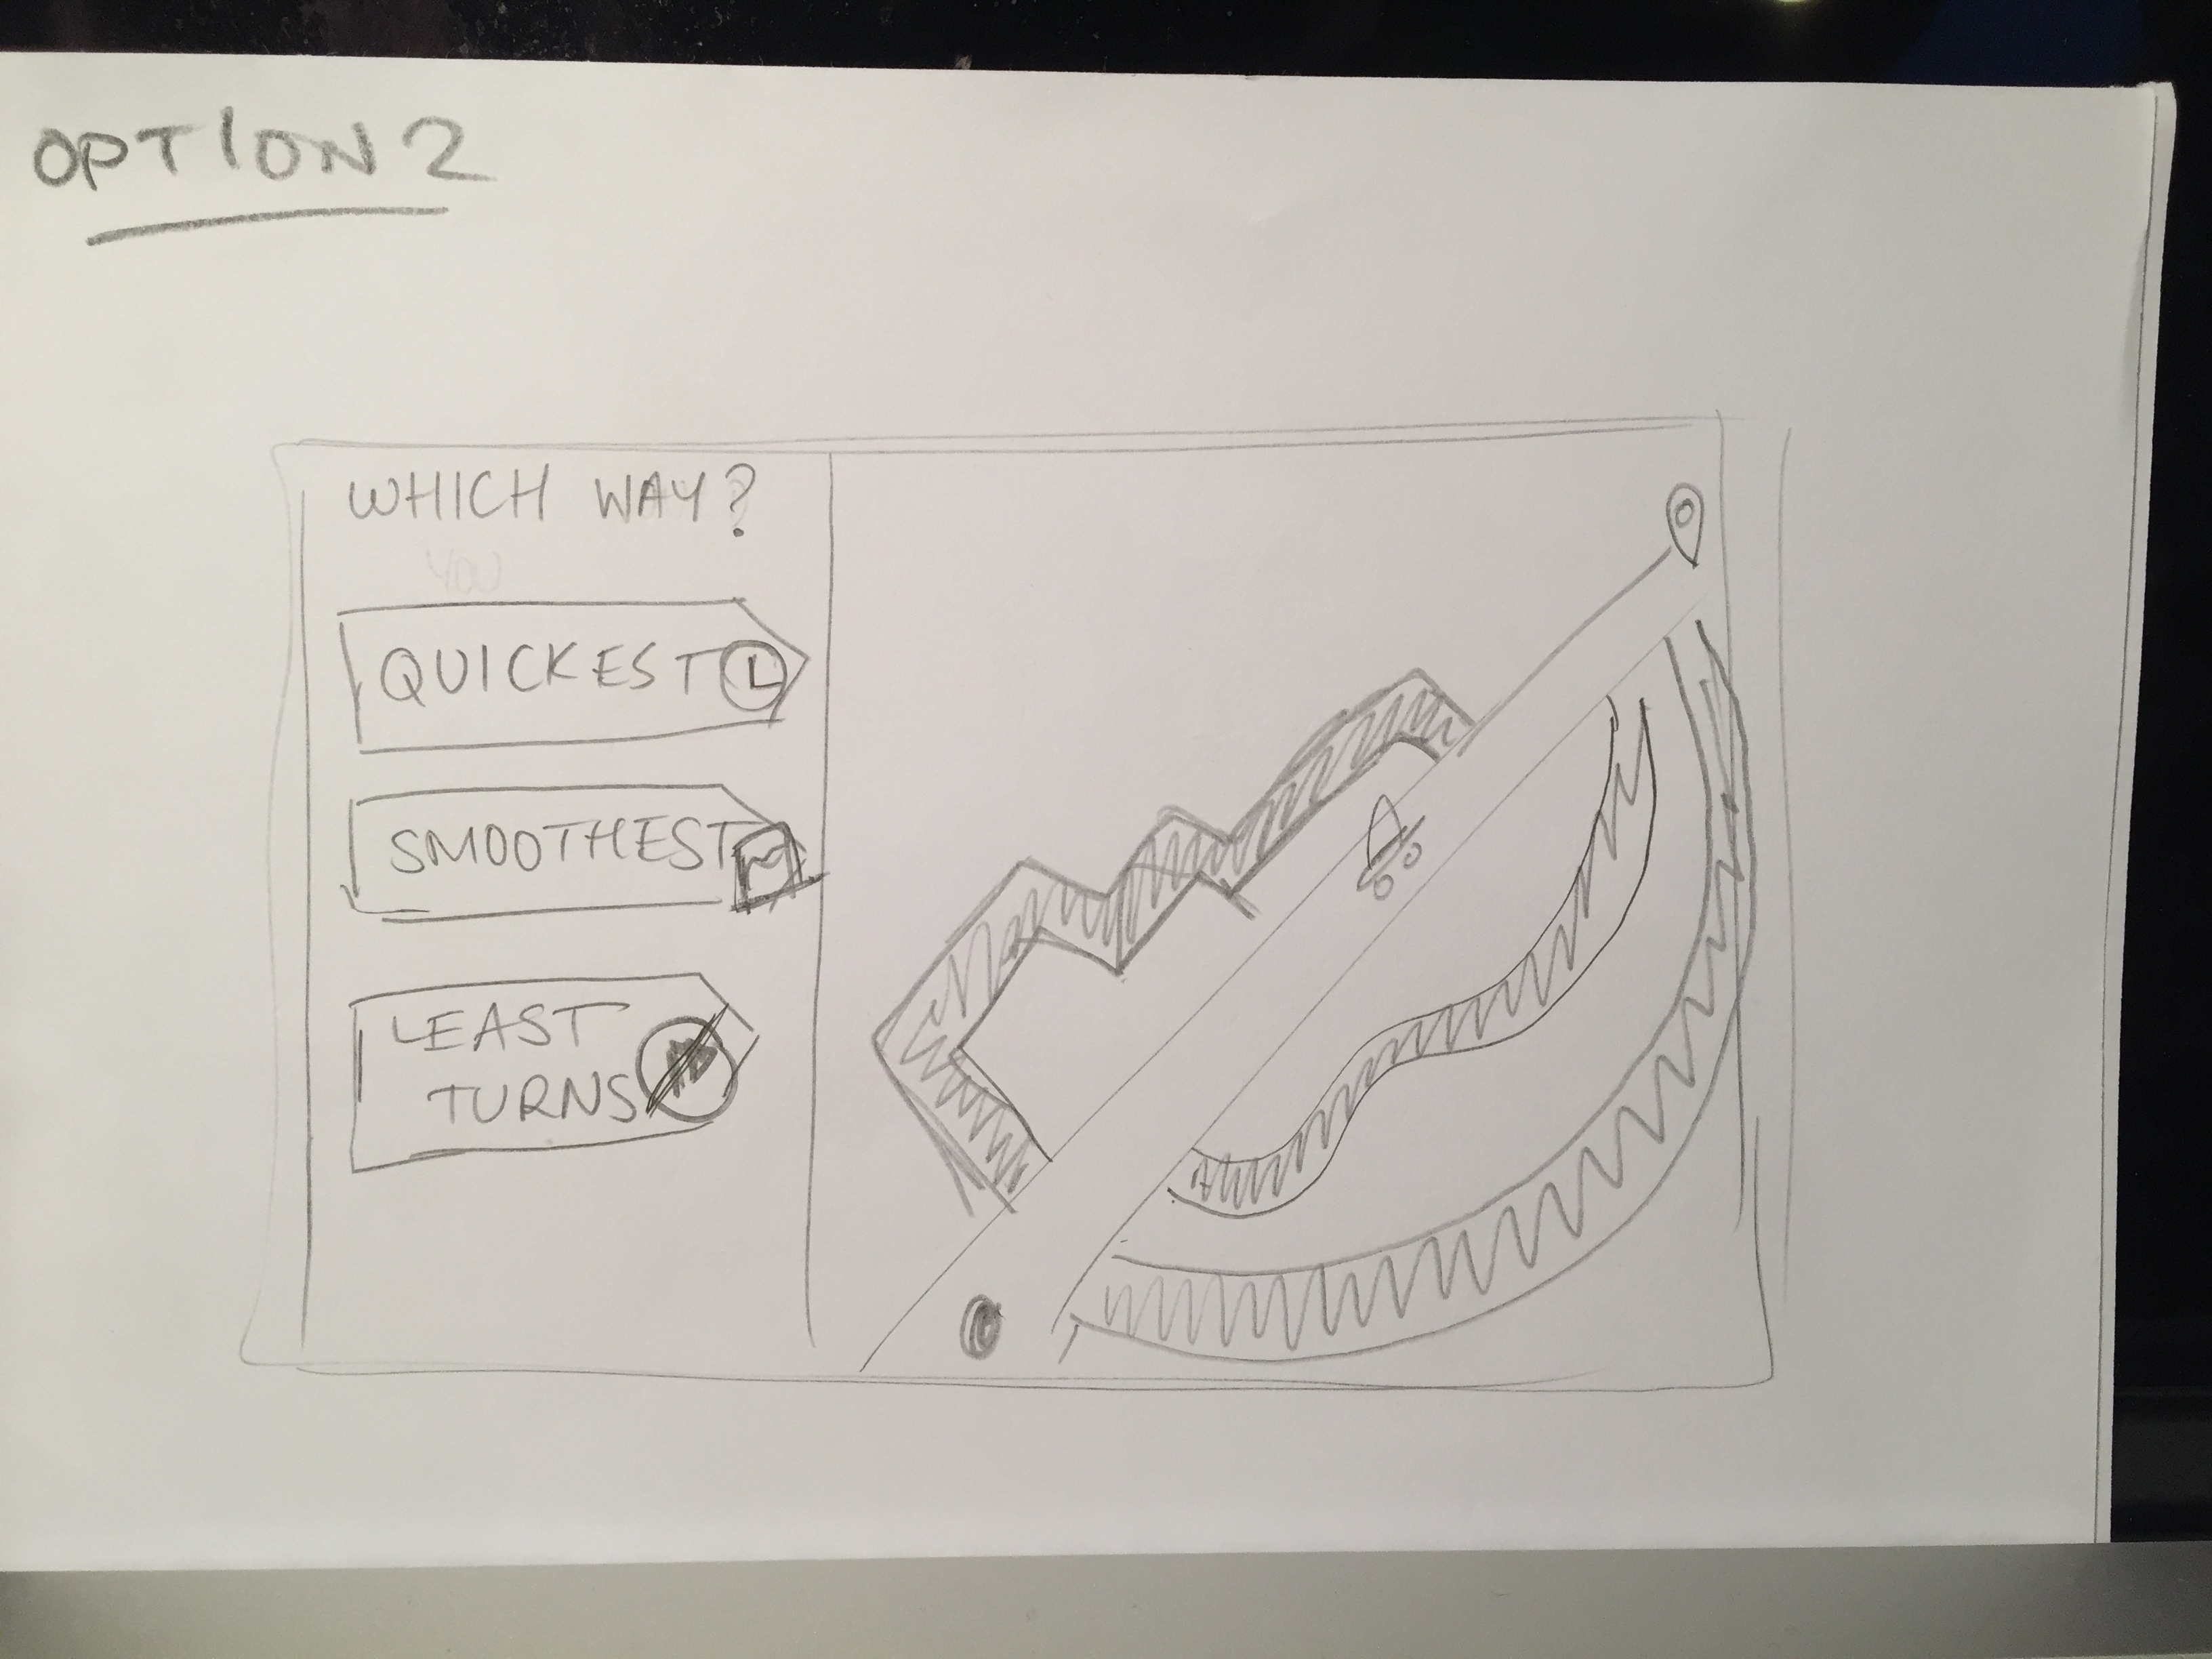 OPTION 2
WHICH WAY?
YOU
QUICKEST
SMOOTHEST
LEAST
TURNS